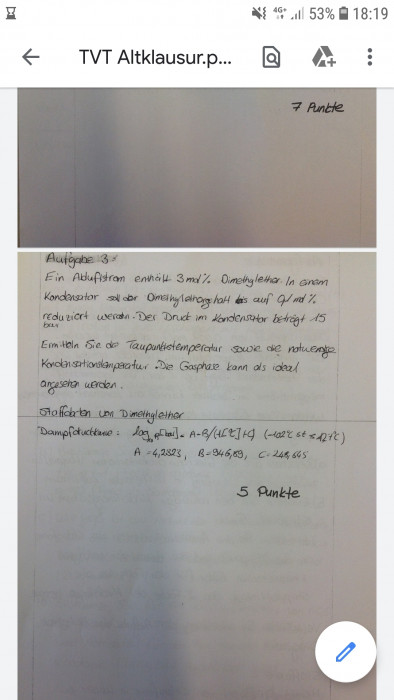 4G+ 53% 18:19
TVT Altklausur.p...
7 Punkte
Aufgabe 3:
Ein Abluftstrom enthält 3 mol % Dimethylether. In einem
Kondensator soll der Dimethylethergehalt bis auf 0,1 mol %
reduziert werden. Der Druck im Kondensator beträgt 15
bar
Ermitteln Sie die Taupunktstemperatur sowie die notwendige
Kondensationstemperatur. Die Gasphase kann als ideal
angesehen werden.
Stoffdaten von Dimethylether
Dampfdruckkurve: log₁₀ p[bar] = A-B/(t[°C]+C)
A = 4,2823, B = 946,89, C =
5 Punkte